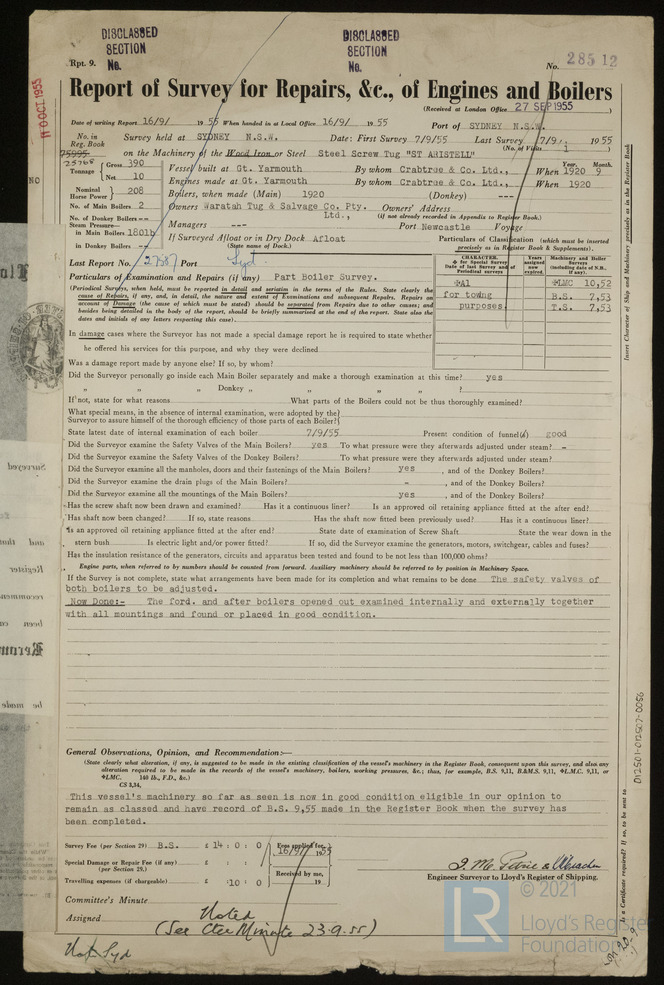 DISCLASSED SECTION No.
DISCLASSED SECTION No.
Rpt. 9.
No. 28512
Report of Survey for Repairs, &c., of Engines and Boilers
(Received at London Office 27 SEP 1955
Date of writing Report 16/9/ 1955 When handed in at Local Office 16/9/ 1955 Port of SYDNEY N.S.W.
No. in Reg. Book
Survey held at SYDNEY N.S.W. Date: First Survey 7/9/55 Last Survey 7/9/ 1955
(No. of Visits 1 )
75995
25768
on the Machinery of the Wood Iron or Steel Steel Screw Tug "ST ARISTELL"
Tonnage Gross 390 Net 10
Vessel built at Gt. Yarmouth By whom Crabtree & Co. Ltd., When Year. 1920 Month. 9
Engines made at Gt. Yarmouth By whom Crabtree & Co. Ltd., When 1920
Nominal Horse Power 208
Boilers, when made (Main) 1920 (Donkey) ---
No. of Main Boilers 2
Owners Waratah Tug & Salvage Co. Pty. Ltd., Owners' Address
(if not already recorded in Appendix to Register Book.)
No. of Donkey Boilers --
Managers --- Port Newcastle Voyage
Steam Pressure— in Main Boilers 180lb
in Donkey Boilers --
If Surveyed Afloat or in Dry Dock Afloat
(State name of Dock.)
Particulars of Classification (which must be inserted precisely as in Register Book & Supplements).
Last Report No. 27587 Port Syd
Particulars of Examination and Repairs (if any) Part Boiler Survey.
(Periodical Surveys, when held, must be reported in detail and seriatim in the terms of the Rules. State clearly the
cause of Repairs, if any, and, in detail, the nature and extent of Examinations and subsequent Repairs. Repairs on
account of Damage (the cause of which must be stated) should be separated from Repairs due to other causes; and
besides being detailed in the body of the report, should be briefly summarised at the end of the report. State also the
dates and initials of any letters respecting this case).
CHARACTER. ✠ for Special Survey Date of last Survey and of Periodical surveys
Years assigned now expired.
Machinery and Boiler Surveys (including date of N.B., if any).
✠A1 ✠LMC 10,52
for towing B.S. 7,53
purposes. T.S. 7,53
In damage cases where the Surveyor has not made a special damage report he is required to state whether
he offered his services for this purpose, and why they were declined
Was a damage report made by anyone else? If so, by whom?
Did the Surveyor personally go inside each Main Boiler separately and make a thorough examination at this time? yes
" " Donkey " " " " ?
If not, state for what reasons What parts of the Boilers could not be thoroughly examined?
What special means, in the absence of internal examination, were adopted by the
Surveyor to assure himself of the thorough efficiency of those parts of each Boiler?
State latest date of internal examination of each boiler 7/9/55 Present condition of funnel(s) good
Did the Surveyor examine the Safety Valves of the Main Boilers? yes To what pressure were they afterwards adjusted under steam? -
Did the Surveyor examine the Safety Valves of the Donkey Boilers? To what pressure were they afterwards adjusted under steam?
Did the Surveyor examine all the manholes, doors and their fastenings of the Main Boilers? yes , and of the Donkey Boilers?
Did the Surveyor examine the drain plugs of the Main Boilers? - , and of the Donkey Boilers?
Did the Surveyor examine all the mountings of the Main Boilers? yes , and of the Donkey Boilers?
Has the screw shaft now been drawn and examined? Has it a continuous liner? Is an approved oil retaining appliance fitted at the after end?
Has shaft now been changed? If so, state reasons Has the shaft now fitted been previously used? Has it a continuous liner?
Is an approved oil appliance fitted at the after end? State date of examination of Screw Shaft State the wear down in the
stern bush Is electric light and/or power fitted? If so, did the Surveyor examine the generators, motors, switchgear, cables and fuses?
Has the insulation resistance of the generators, circuits and apparatus been tested and found to be not less than 100,000 ohms?
Engine parts, when referred to by numbers should be counted from forward. Auxiliary machinery should be referred to by position in Machinery Space.
If the Survey is not complete, state what arrangements have been made for its completion and what remains to be done The safety valves of
both boilers to be adjusted.
Now Done:- The ford. and after boilers opened out examined internally and externally together
with all mountings and found or placed in good condition.
General Observations, Opinion, and Recommendation:—
(State clearly what alteration, if any, is suggested to be made in the existing classification of the vessel's machinery in the Register Book, consequent upon this survey, and also any
alteration required to be made in the records of the vessel's machinery, boilers, working pressures, &c.; thus, for example, B.S. 9,11, B&M.S. 9,11, ✠L.M.C. 9,11, or
✠LMC. 140 lb., F.D., &c.)
CS 3,34,
This vessel's machinery so far as seen is now in good condition eligible in our opinion to
remain as classed and have record of B.S. 9,55 made in the Register Book when the survey has
been completed.
Survey Fee (per Section 29) B.S. £ 14 : 0 : 0
Fees applied for, 16/9/ 1955
Special Damage or Repair Fee (if any) (per Section 29.) £ : :
Received by me, 19
Travelling expenses (if chargeable) £ :10 : 0
Engineer Surveyor to Lloyd's Register of Shipping.
Committee's Minute
Assigned Noted
(See Cttee Minute 23.9.55)
Not Syd
10 OCT 1955
Insert Character of Ship and Machinery precisely as in the Register Book
012501-012507-0056
Is a Certificate required? If so, to be sent to
LR
© 2021
Lloyd's Register
Foundation